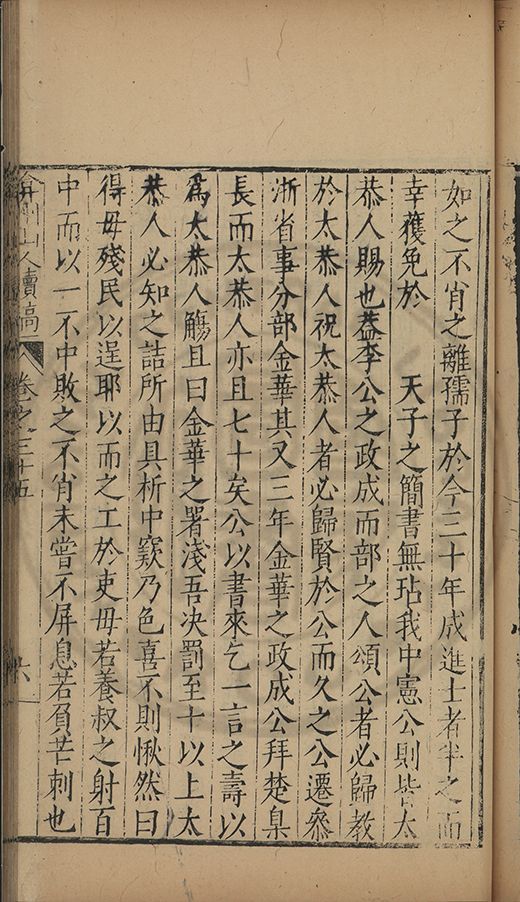 如之不肖之離孺子於今三十年成進士者半之而
幸獲免於　天子之簡書無玷我中憲公則皆太
恭人賜也葢李公之政成而部之人頌公者必歸教
於太恭人祝太恭人者必歸賢於公而久之公遷叅
浙省事分部金華其又三年金華之政成公拜楚臬
長而太恭人亦且七十矣公以書來乞一言之壽以
爲太恭人觴且曰金華之署淺吾决罰至十以上太
恭人必知之詰所由具析中窾乃色喜不則愀然曰
得毋殘民以逞耶以而之工於吏毋若養叔之射百
中而以一不中敗之不肖未嘗不屏息若負芒刺也
弇州山人續稿　卷之三十五　六